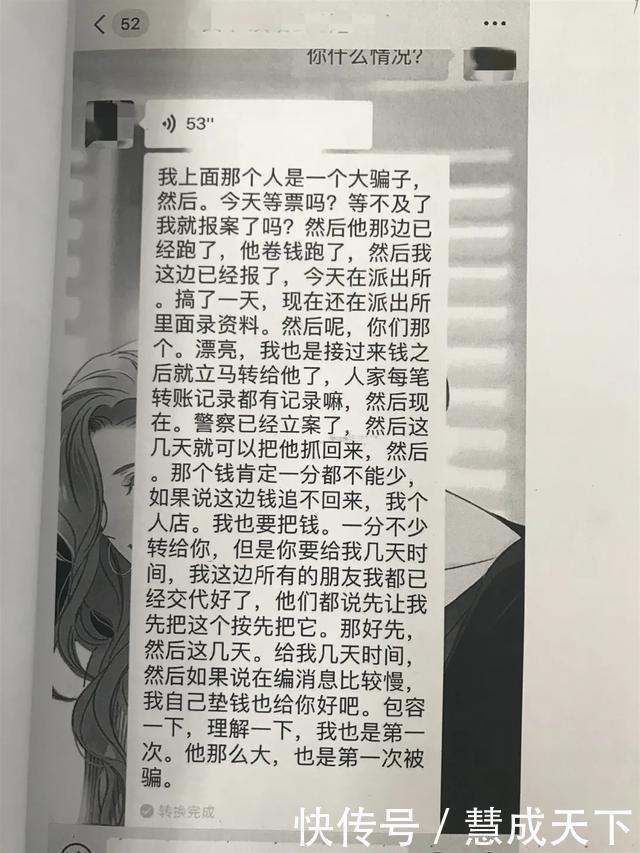 52
你什么情况?
53"
我上面那个人是一个大骗子，
然后。今天等票吗？等不及了
我就报案了吗？然后他那边已
经跑了，他卷钱跑了，然后我
这边已经报了，今天在派出所
。搞了一天，现在还在派出所
里面录资料。然后呢，你们那
个。漂亮，我也是接过来钱之
后就立马转给他了，人家每笔
转账记录都有记录嘛，然后现
在。警察已经立案了，然后这
几天就可以把他抓回来，然后
。那个钱肯定一分都不能少，
如果说这边钱追不回来，我个
人店。我也要把钱。一分不少
转给你，但是你要给我几天时
间，我这边所有的朋友我都已
经交代好了，他们都说先让我
先把这个按先把它。那好先，
然后这几天。给我几天时间，
然后如果说在编消息比较慢，
我自己垫钱也给你好吧。包容
一下，理解一下，我也是第一
次。他那么大，也是第一次被
骗。
转换完成
快传号 / 慧成天下